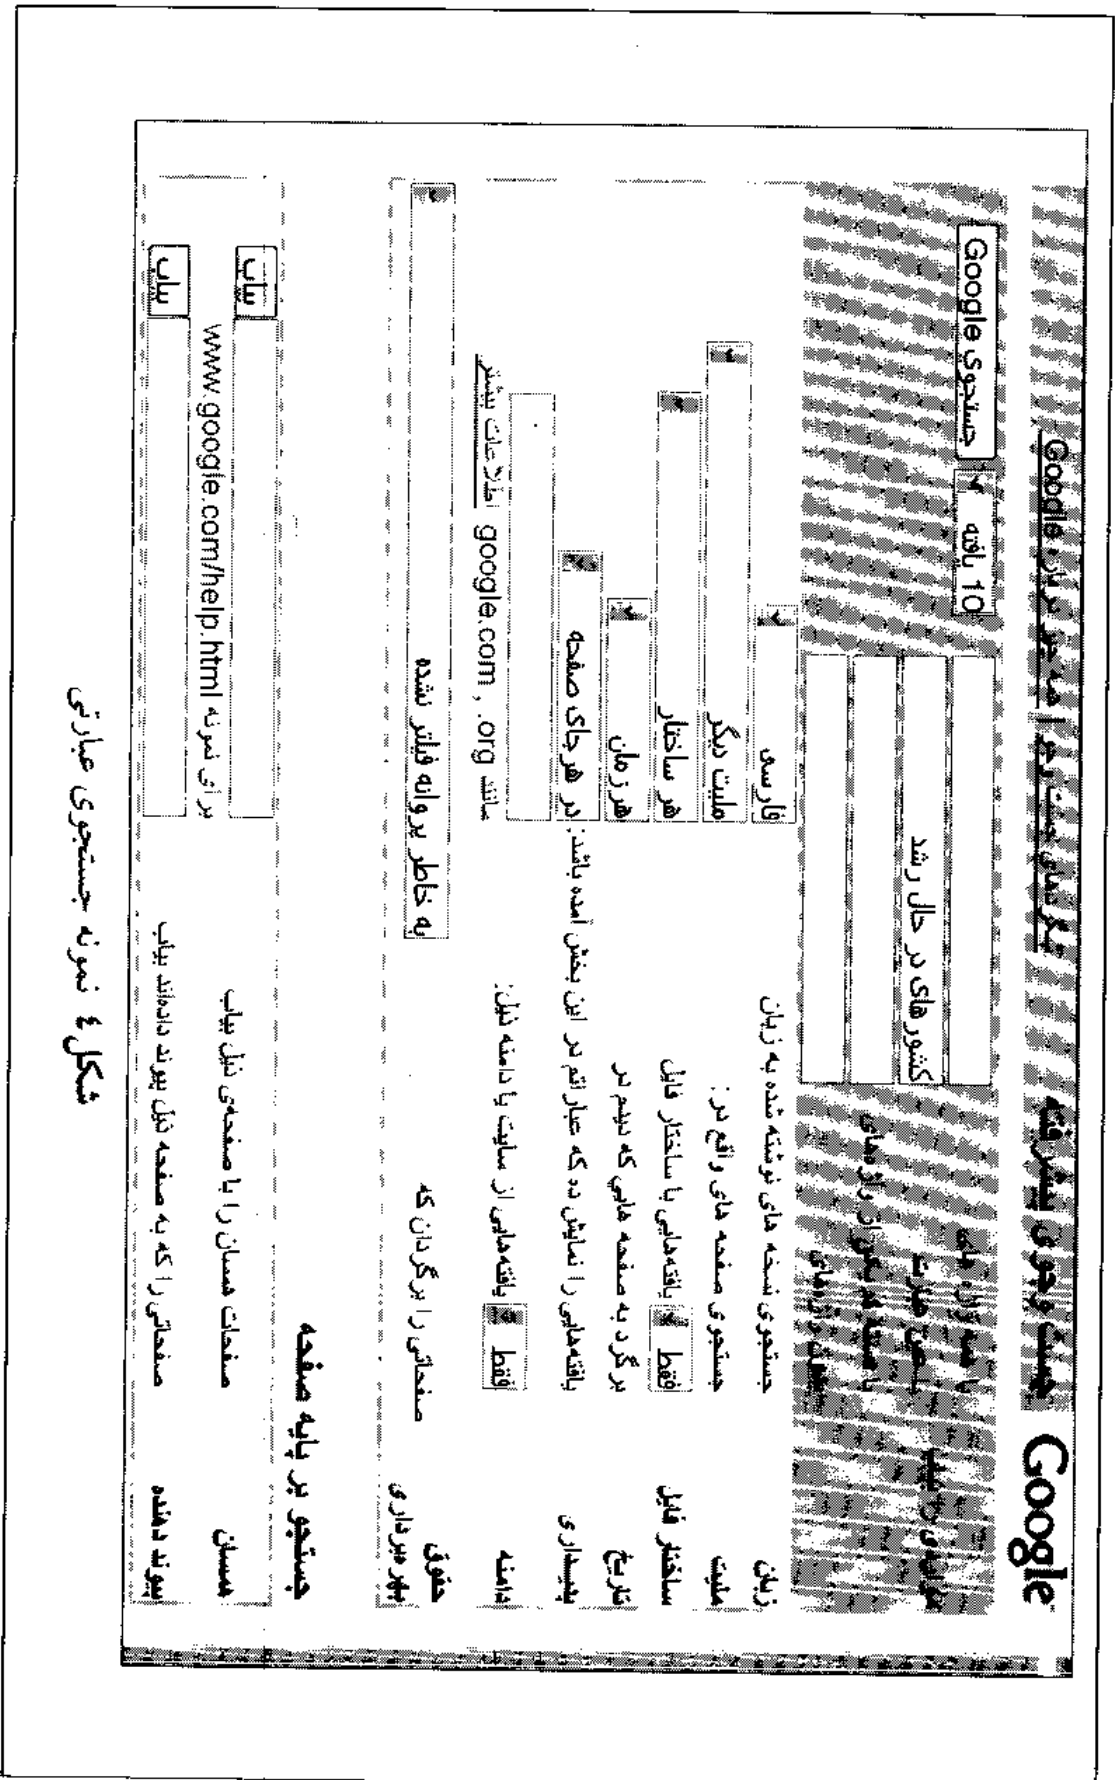 Google جست و جوی پیشرفته
نگر نمای جست و جو | همه چیز درباره Google
یافته‌ی را بیاب
با همه واژه های
با عین عبارت کشورهای در حال رشد
با هسته کم یکی از واژه‌های
بدون واژه‌های
10 یافته جستجوی Google
زبان جستجوی نسخه های نوشته شده به زبان فارسی
ملیت جستجوی صفحه های واقع در : ملیت دیگر
ساختار فایل فقط یافته‌هایی با ساختار فایل هر ساختار
تاریخ برگرد به صفحه هایی که دیدم در هرزمان
پدیداری یافته‌هایی را نمایش ده که عباراتم در این بخش آمده باشد: در هرجای صفحه
دامنه فقط یافته‌هایی از سایت یا دامنه ذیل:
مانند google.com , .org اطلاعات بیشتر
حقوق بهره‌برداری صفحاتی را برگردان که به خاطر پروانه فیلتر نشده
جستجو بر پایه صفحه
همسان صفحات همسان را با صفحه‌ی ذیل بیاب بیاب
برای نمونه www.google.com/help.html
پیوند دهنده صفحاتی را که به صفحه ذیل پیوند داده‌اند بیاب بیاب
شکل ٤ نمونه جستجوی عبارتی